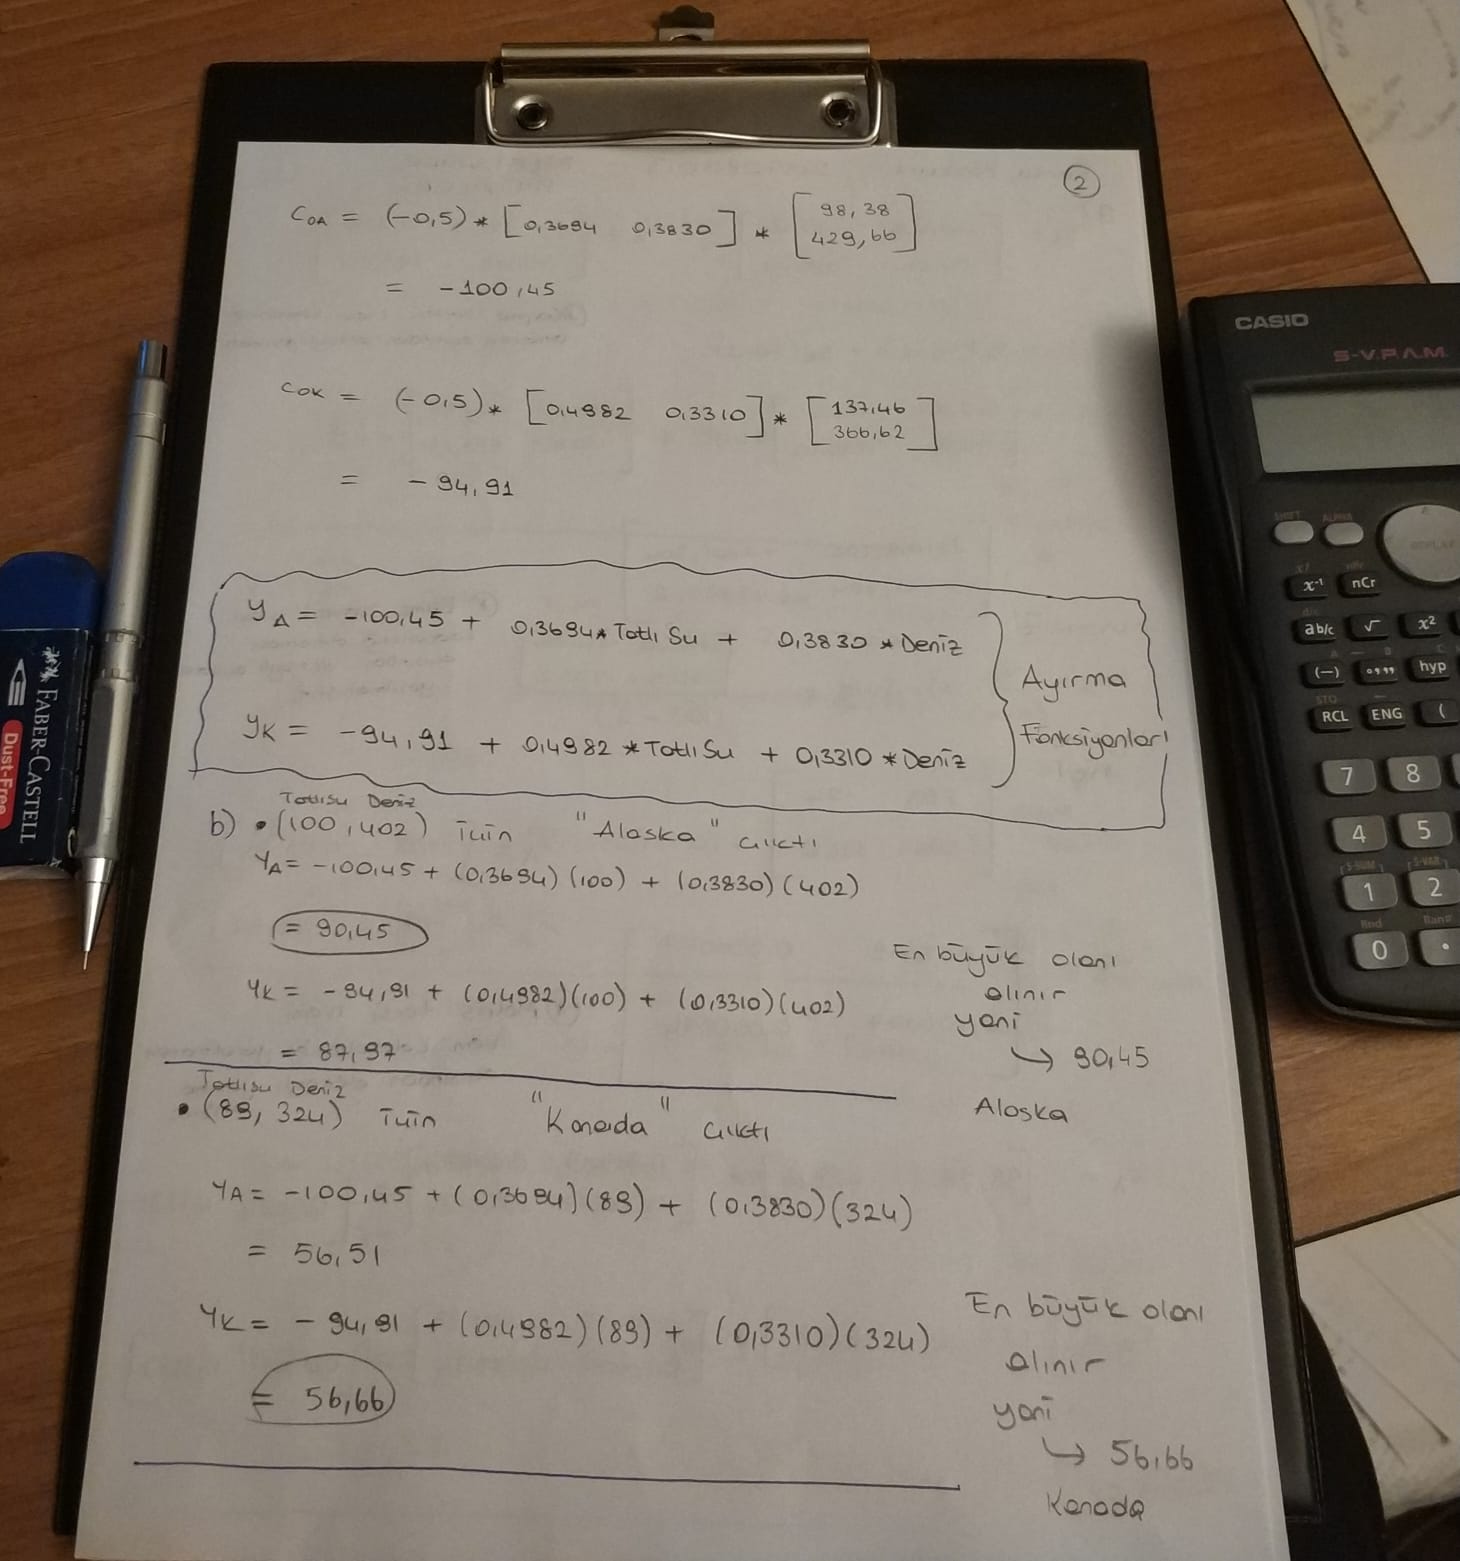 2
COA = (-0,5) * [0,3694 0,3830] * [98,38
429,66]
= -100,45
COK = (-0,5) * [0,4982 0,3310] * [137,46
366,62]
= -94,91
YA = -100,45 + 0,3694 * Tatlı Su + 0,3830 * Deniz
YK = -94,91 + 0,4982 * Tatlı Su + 0,3310 * Deniz
Ayırma
Fonksiyonları
Tatlısu Deniz
b) • (100, 402) için "Alaska" çıktı
YA = -100,45 + (0,3694)(100) + (0,3830)(402)
= 90,45
YK = -94,91 + (0,4982)(100) + (0,3310)(402)
= 87,97
En büyük olanı
alınır
yani
↳ 90,45
Alaska
Tatlısu Deniz
• (89, 324) için "Kanada" çıktı
YA = -100,45 + (0,3694)(89) + (0,3830)(324)
= 56,51
YK = -94,91 + (0,4982)(89) + (0,3310)(324)
= 56,66
En büyük olanı
alınır
yani
↳ 56,66
Kanada
FABER-CASTELL
Dust-Free
CASIO
S-V.P.A.M.
SHIFT ALPHA
x! nPr
x⁻¹ nCr
d/c
ab/c √ x²
A B C
(-) °,,, hyp
STO
RCL ENG (
7 8
4 5
S-SUM S-VAR
1 2
Rnd Ran#
0 .